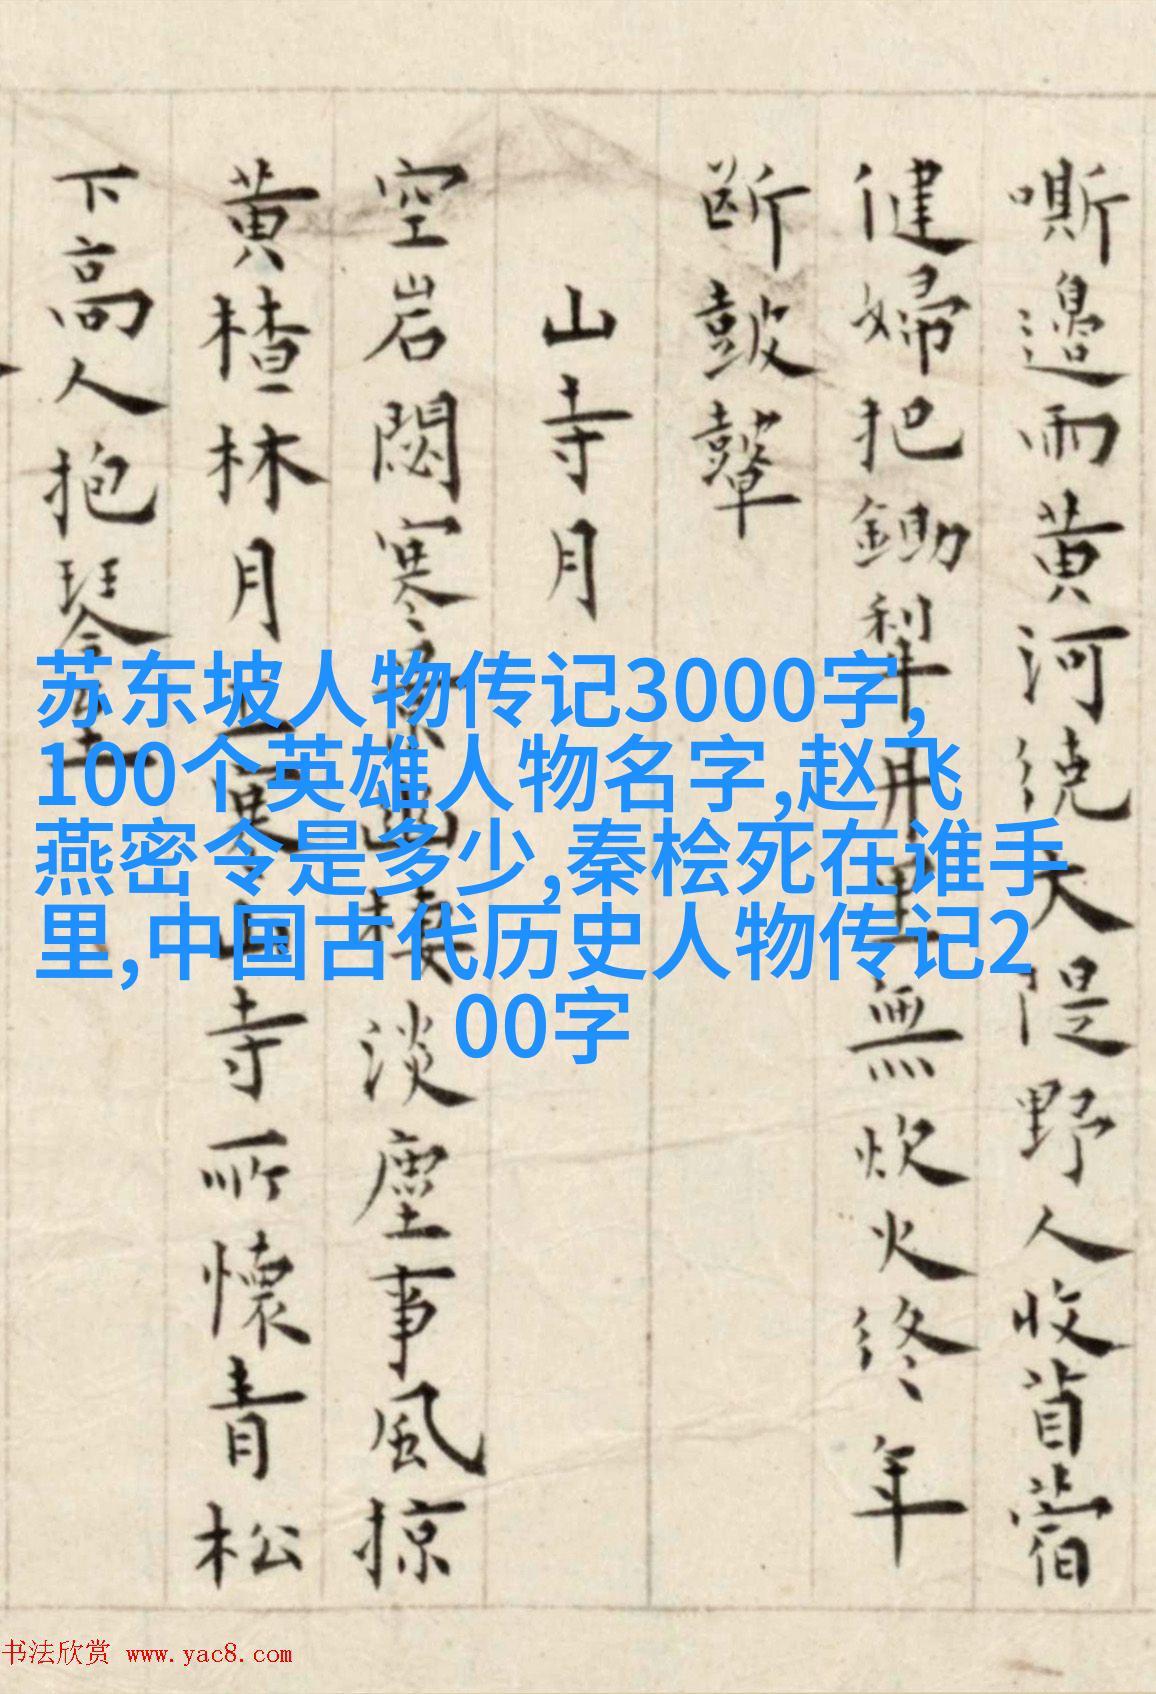 嘶邊雨黄河繞大隄野人收苜蓿
健婦把鋤犁舟里無炊火終年
斷鼓鼙
山寺月
空岩閟寒淡塵事風掠
黄楂林月寺所懷青松
下高人抱琴
苏东坡人物传记3000字,
100个英雄人物名字,赵飞
燕密令是多少,秦桧死在谁手
里,中国古代历史人物传记2
00字
书法欣赏 www.yac8.com